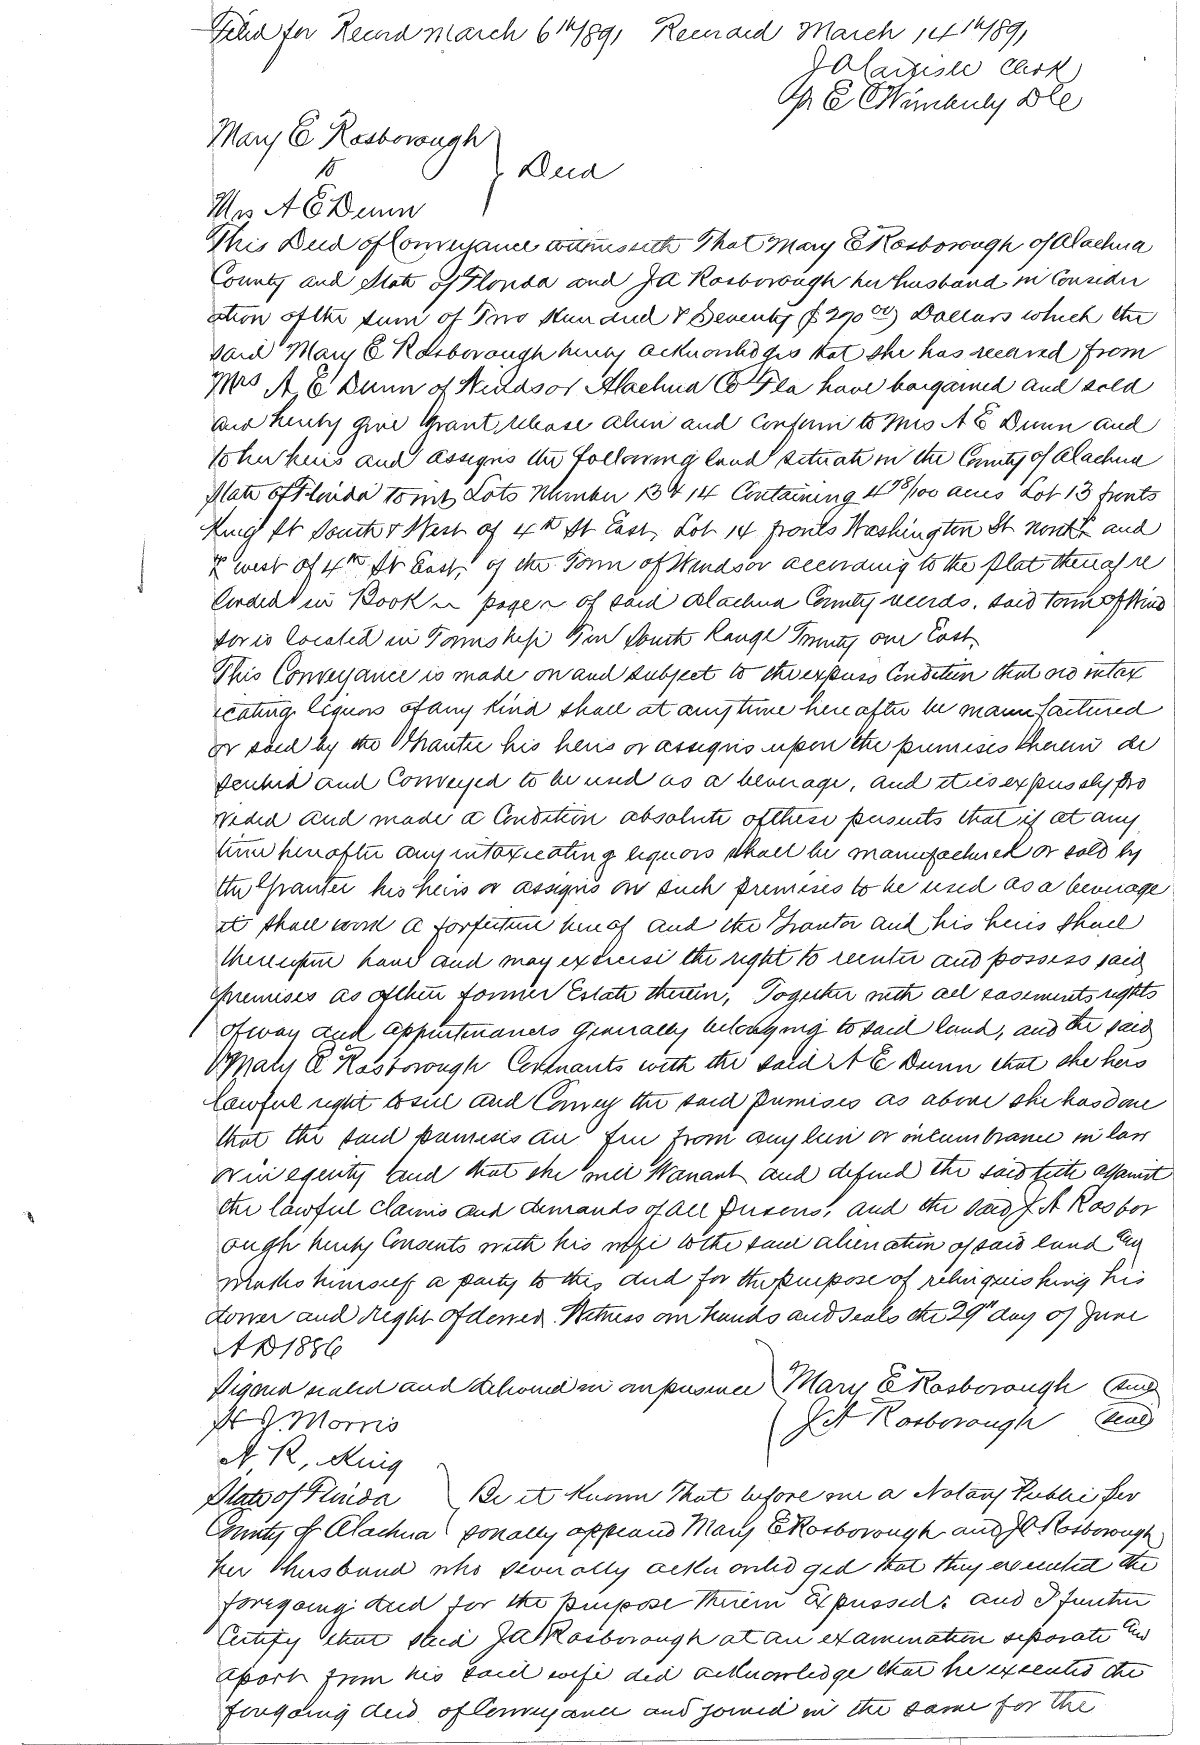 Filed for Record March 6th/89, Recorded March 14th/89,
J A Carlisle Clerk
Pr E C Wimberly D C
Mary E Rosborough
to
} Deed
Mrs A E Dunn
This Deed of Conveyance witnesseth That Mary E Rosborough of Alachua
County and State of Florida and J A Rosborough her husband in Consider
ation of the sum of Two Hundred & Seventy ($270 00) Dollars which the
said Mary E Rosborough hereby acknowledges that she has received from
Mrs A E Dunn of Windsor Alachua Co Fla have bargained and sold
and hereby give grant, release alien and confirm to Mrs A E Dunn and
to her heirs and assigns the following land situate in the County of Alachua
State of Florida towit; Lots Number 13 & 14 Containing 4 78/100 acres Lot 13 fronts
King St South & West of 4th St East, Lot 14 fronts Washington St North and
& west of 4th St East, of the Town of Windsor according to the plat thereof re
corded in Book ~ page ~ of said Alachua County records. said town of Wind
sor is located in Township Ten South Range Twenty one East,
This Conveyance is made on and subject to the express Condition that no intox
icating liquors of any kind shall at any time hereafter be manufactured
or sold by the Grantee his heirs or assigns upon the premises herein de
scribed and Conveyed to be used as a beverage, and it is expressly pro
vided and made a Condition absolute of these presents that if at any
time hereafter any intoxicating liquors shall be manufactured or sold by
the Grantee his heirs or assigns on such premises to be used as a beverage
it shall work a forfeiture hereof and the Grantor and his heirs shall
thereupon have and may exercise the right to reenter and possess said
premises as of their former Estate therein, Together with all easements rights
of way and appurtenances generally belonging to said land, and the said
Mary E Rosborough Covenants with the said A E Dunn that she hers
lawful right to sell and Convey the said premises as above she has done
that the said premises are free from any lien or incumbrance in law
or in equity and that she will Warrant and defend the said title against
the lawful claims and demands of all persons, and the said J A Rosbor
ough hereby Consents with his wife to the said alienation of said land and
makes himself a party to this deed for the purpose of relinquishing his
dower and right of dower. Witness our hands and seals the 29th day of June
A D 1886
Signed sealed and delivered in our presence } Mary E Rosborough (seal)
H J Morris
J A Rosborough (seal)
A. R. King
State of Florida } Be it Known That before me a Notary Public per
County of Alachua sonally appeared Mary E Rosborough and J A Rosborough
her husband who severally acknowledged that they executed the
foregoing deed for the purpose therein Expressed: and I further
Certify that said J A Rosborough at an examination separate and
apart from his said wife did acknowledge that he executed the
foregoing deed of Conveyance and joined in the same for the